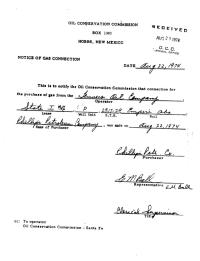 OIL CONSERVATION COMMISSION
BOX 1980
HOBBS, NEW MEXICO
RECEIVED
AUG 27 1974
O. C. C.
NOTICE OF GAS CONNECTION
DATE Aug 22, 1974
This is to notify the Oil Conservation Commission that connection for
the purchase of gas from the Oil Company
Operator
State
Lease
Well Unit
S.T.R.
Pool
Phillips Petroleum Company, was made on Aug 22, 1974
Name of Purchaser
Phillips Pete. Co.
Purchaser
Representative
Title
cc: To operator
Oil Conservation Commission - Santa Fe